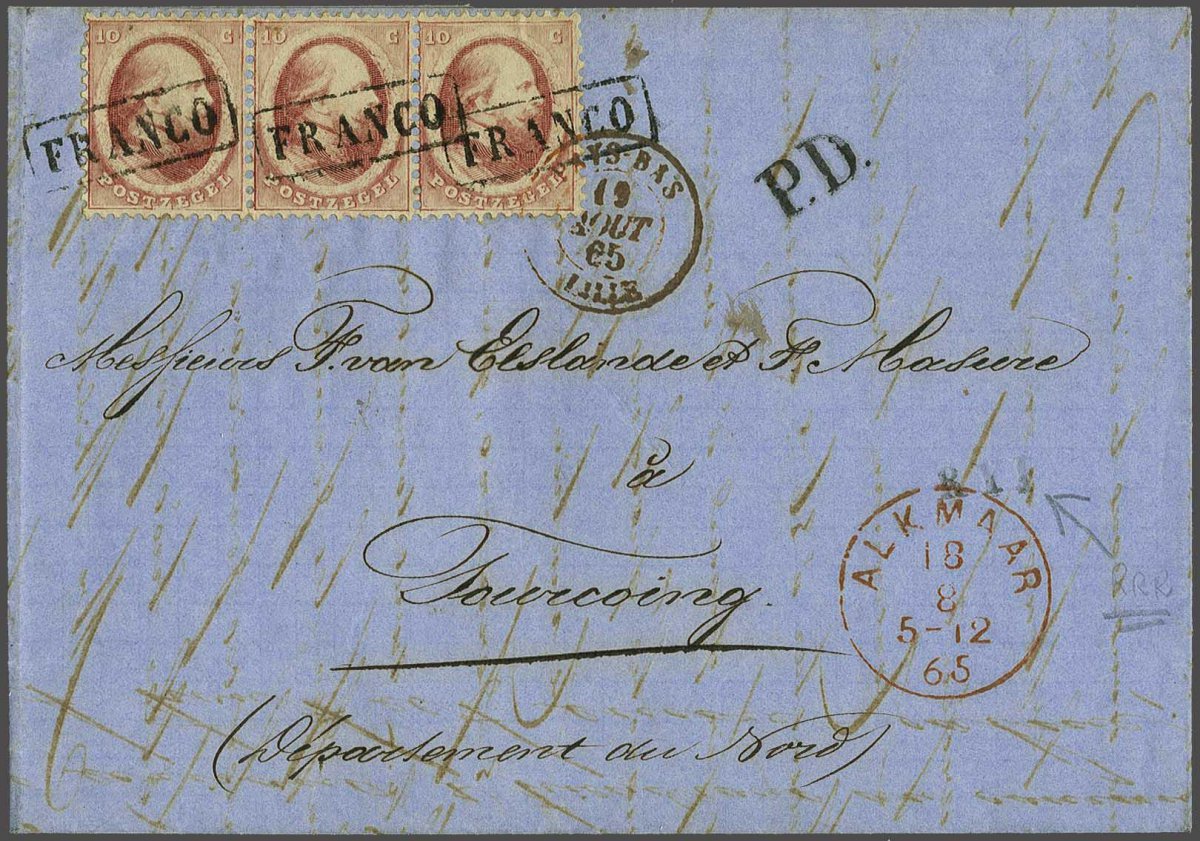 10 C 10 C 10 C
FRANCO FRANCO FRANCO
POSTZEGEL POSTZEGEL POSTZEGEL
PAYS-BAS
19
AOUT
65
LILLE
P.D.
Messieurs F. van Elslande et F. Masure
à
Tourcoing.
(Département du Nord)
ALKMAAR
18
8
5-12
65
RRR